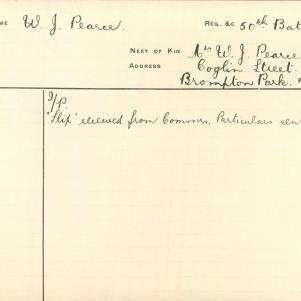 ME W. J. Pearce. REG. &C 50th Bat
NEXT OF KIN Mr W. J. Pearce
ADDRESS Coglin Street.
Brompton Park.
I/P.
'Slip' received from Common. Particulars sen